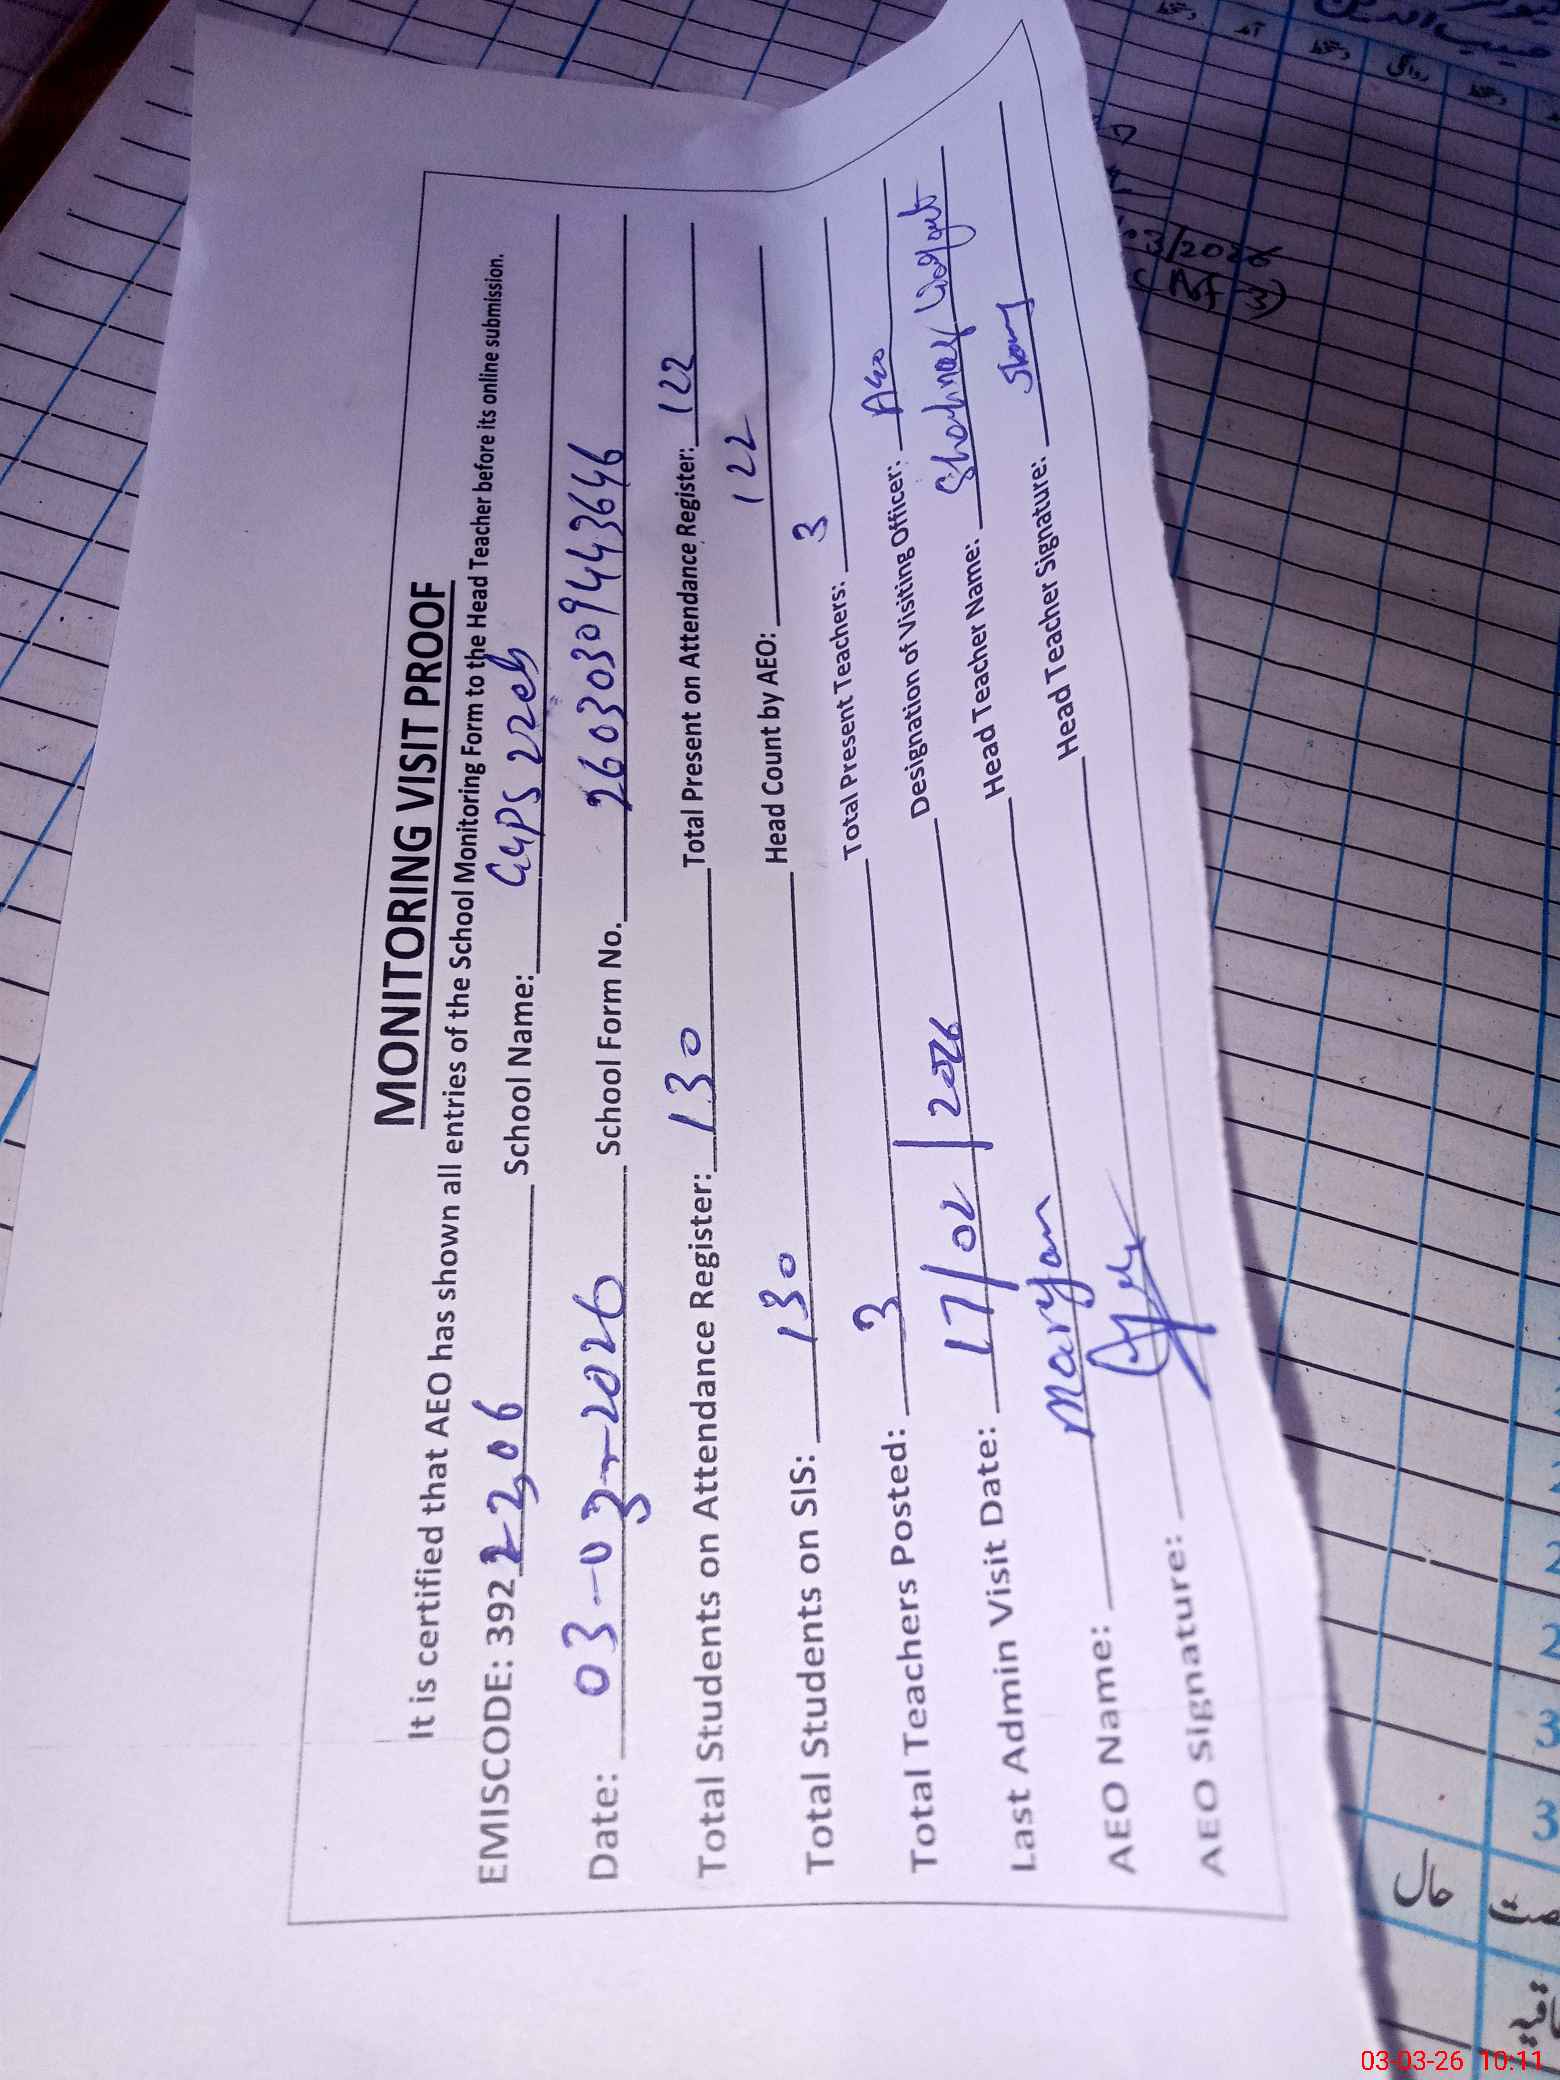 MONITORING VISIT PROOF
It is certified that AEO has shown all entries of the School Monitoring Form to the Head Teacher before its online submission.
EMISCODE: 39222206 School Name: GGPS 22eb
Date: 03-03-2026 School Form No. 26030309443646
Total Students on Attendance Register: 130 Total Present on Attendance Register: 122
Total Students on SIS: 130 Head Count by AEO: 122
Total Teachers Posted: 3 Total Present Teachers: 3
Last Admin Visit Date: 17/02/2026 Designation of Visiting Officer: AEO
AEO Name: Maryam Head Teacher Name: Shahnaz
AEO Signature: Head Teacher Signature:
03/2026
حال
03-03-26 10:11